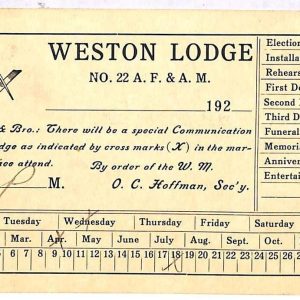 WESTON LODGE
NO. 22 A. F. & A. M.
192
& Bro.: There will be a special Communication
dge as indicated by cross marks (X) in the mar-
ace attend. By order of the W. M.
M. O. C. Hoffman, Sec'y.
Election
Installa
Rehear
First De
Second
Third D
Funeral
Memoria
Anniver
Entertai
Tuesday Wednesday Thursday Friday Saturday
Mar. Apr. May June July Aug. Sept. Oct.
9 10 11 12 13 14 15 16 17 18 19 20 21 22 23 24 25 26 27 28